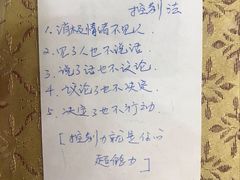 控制法
1. 消极情绪不见人.
2. 见了人也不说话.
3. 说了话也不议论.
4. 议论了也不决定.
5. 决定了也不行动.
[控制力就是你的
超能力]